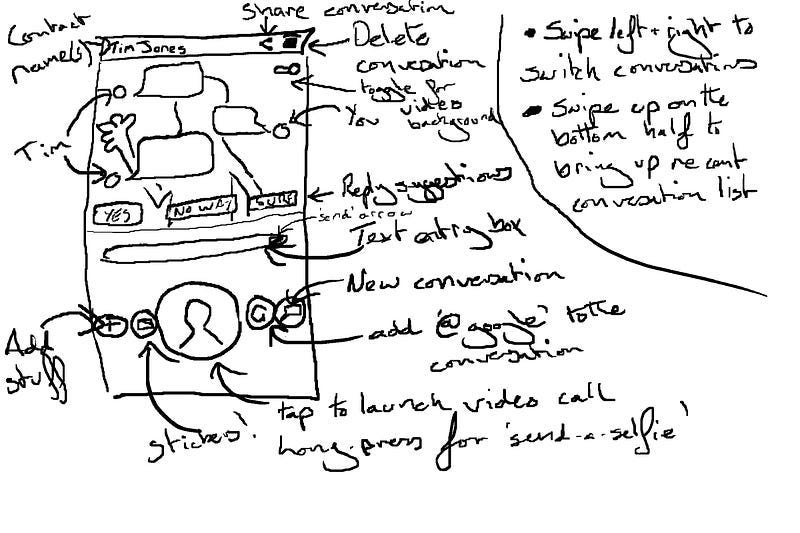 share conversation
Contact
name(s)
Tim Jones
Delete
conversation
toggle for
video
background
You
Tim
Reply suggestions
YES
NO WAY
SURE
'send' arrow
Text entry box
New conversation
add '@google' to the
conversation
G
Add
stuff
stickers?
tap to launch video call
long-press for 'send-a-selfie'
• Swipe left + right to
switch conversations
• Swipe up on the
bottom half to
bring up recent
conversation list